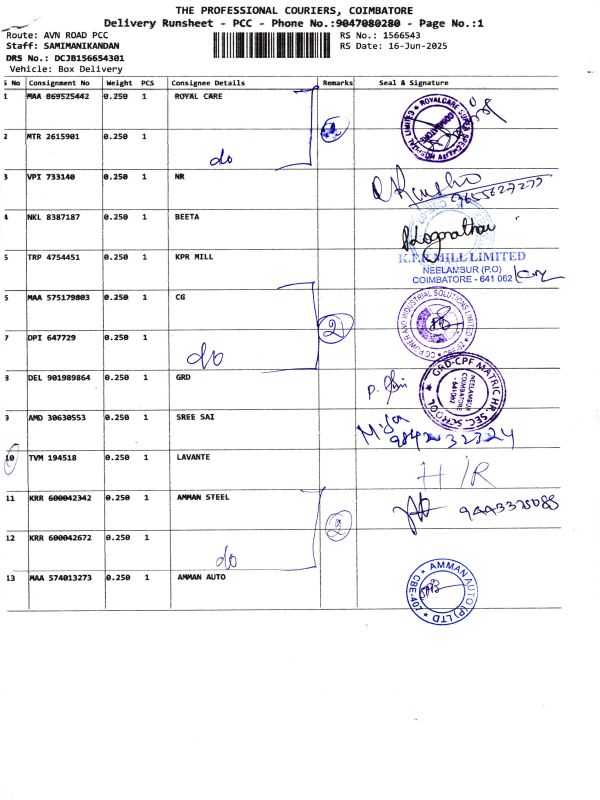 THE PROFESSIONAL COURIERS, COIMBATORE
Delivery Runsheet - PCC - Phone No.:9047080280 - Page No.:1
Route: AVN ROAD PCC RS No.: 1566543
Staff: SAMIMANIKANDAN RS Date: 16-Jun-2025
DRS No.: DCJB156654301
Vehicle: Box Delivery
S No Consignment No Weight PCS Consignee Details Remarks Seal & Signature
1 MAA 869525442 0.250 1 ROYAL CARE
ROYALCARE SUPER SPECIALITY HOSPITAL LIMITED
COIMBATORE
2 MTR 2615901 0.250 1 do
3 VPI 733140 0.250 1 NR
4 NKL 8387187 0.250 1 BEETA
5 TRP 4754451 0.250 1 KPR MILL
K.P.R MILL LIMITED
NEELAMBUR (P.O)
COIMBATORE - 641 062
6 MAA 575179803 0.250 1 CG 2
CG POWER AND INDUSTRIAL SOLUTIONS LIMITED
7 DPI 647729 0.250 1 do
8 DEL 901989864 0.250 1 GRD
GRD-CPF MATRIC HR. SEC. SCHOOL
NEELAMBUR
COIMBATORE
- 641062
9 AMD 30630553 0.250 1 SREE SAI
9842432324
10 TVM 194518 0.250 1 LAVANTE H/R
11 KRR 600042342 0.250 1 AMMAN STEEL 2
12 KRR 600042672 0.250 1 do
13 MAA 574013273 0.250 1 AMMAN AUTO
AMMAN AUTO (P) LTD
CBE-407